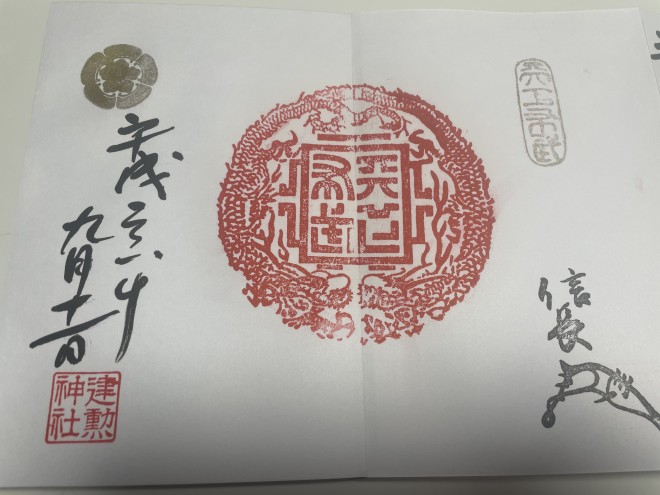 天下布武
信長
天下布武
平成二八年
九月十一日
建勲
神社